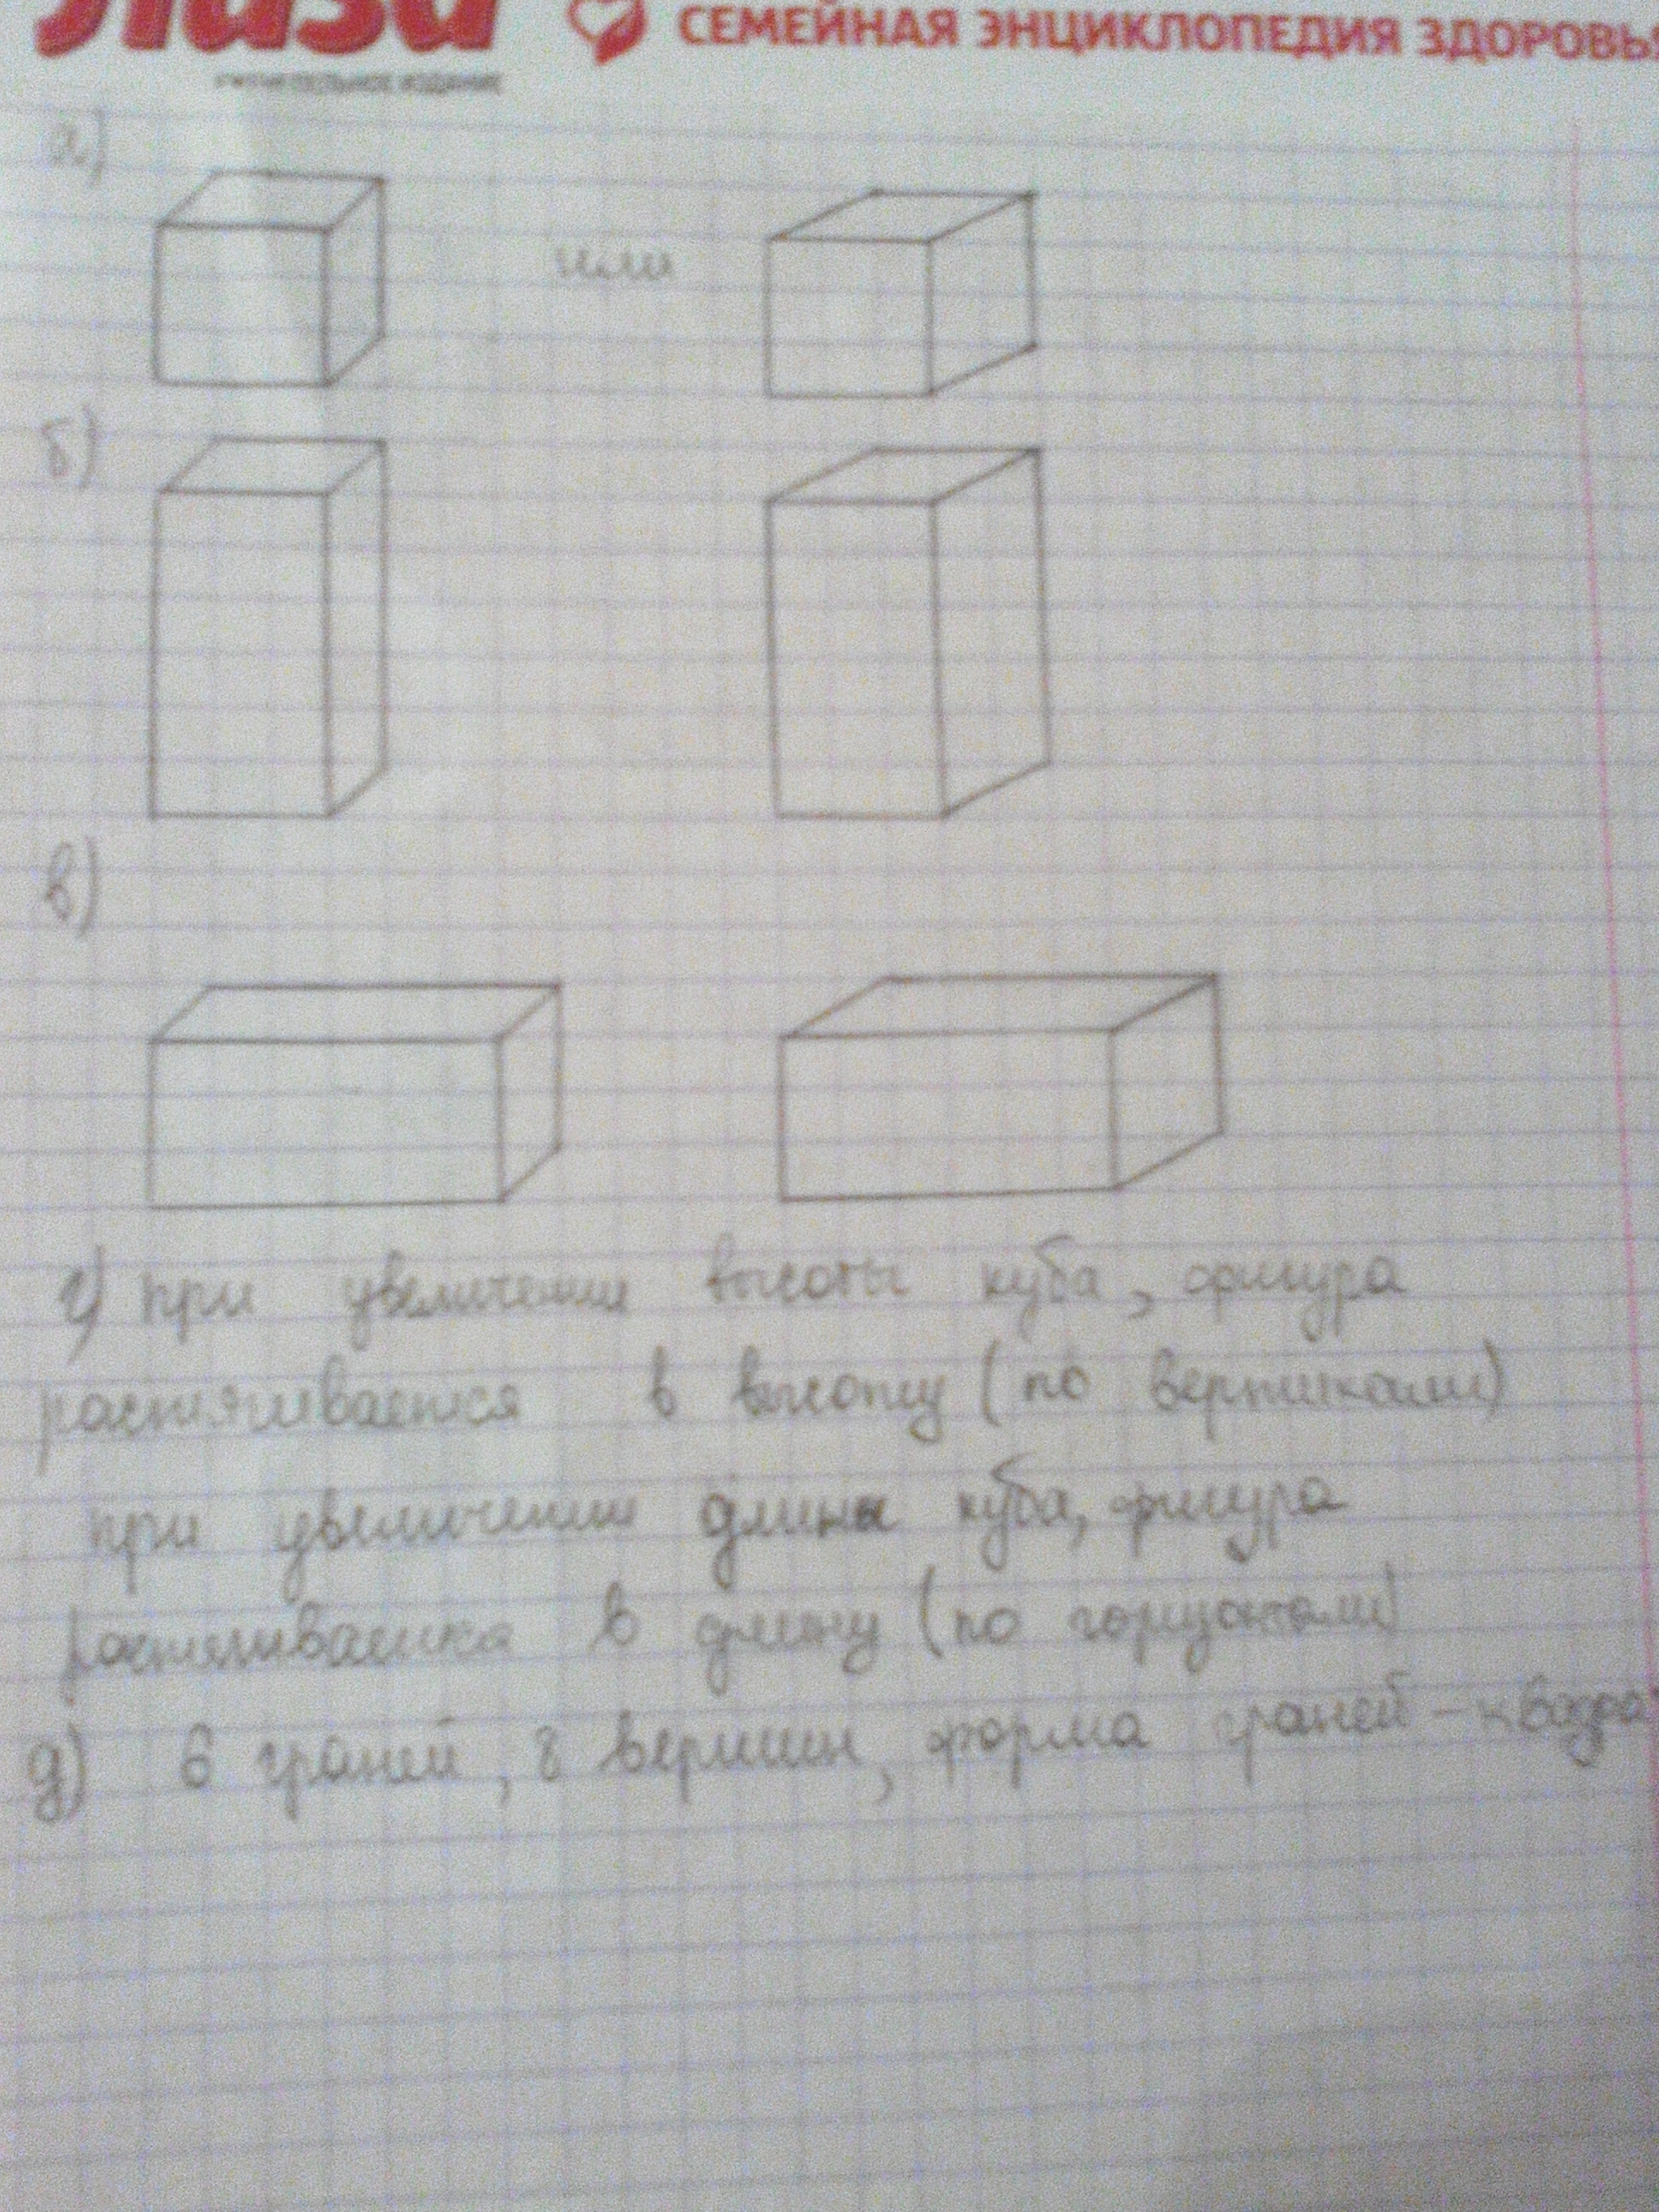 Лиза СЕМЕЙНАЯ ЭНЦИКЛОПЕДИЯ ЗДОРОВЬЯ
ИЗДАНИЕ
а)
или
б)
в)
г) при увеличении высоты куба, фигура
растягивается в высоту (по вертикали)
при увеличении длины куба, фигура
растягивается в длину (по горизонтали)
д) 6 граней, 8 вершин, форма граней - квадрат